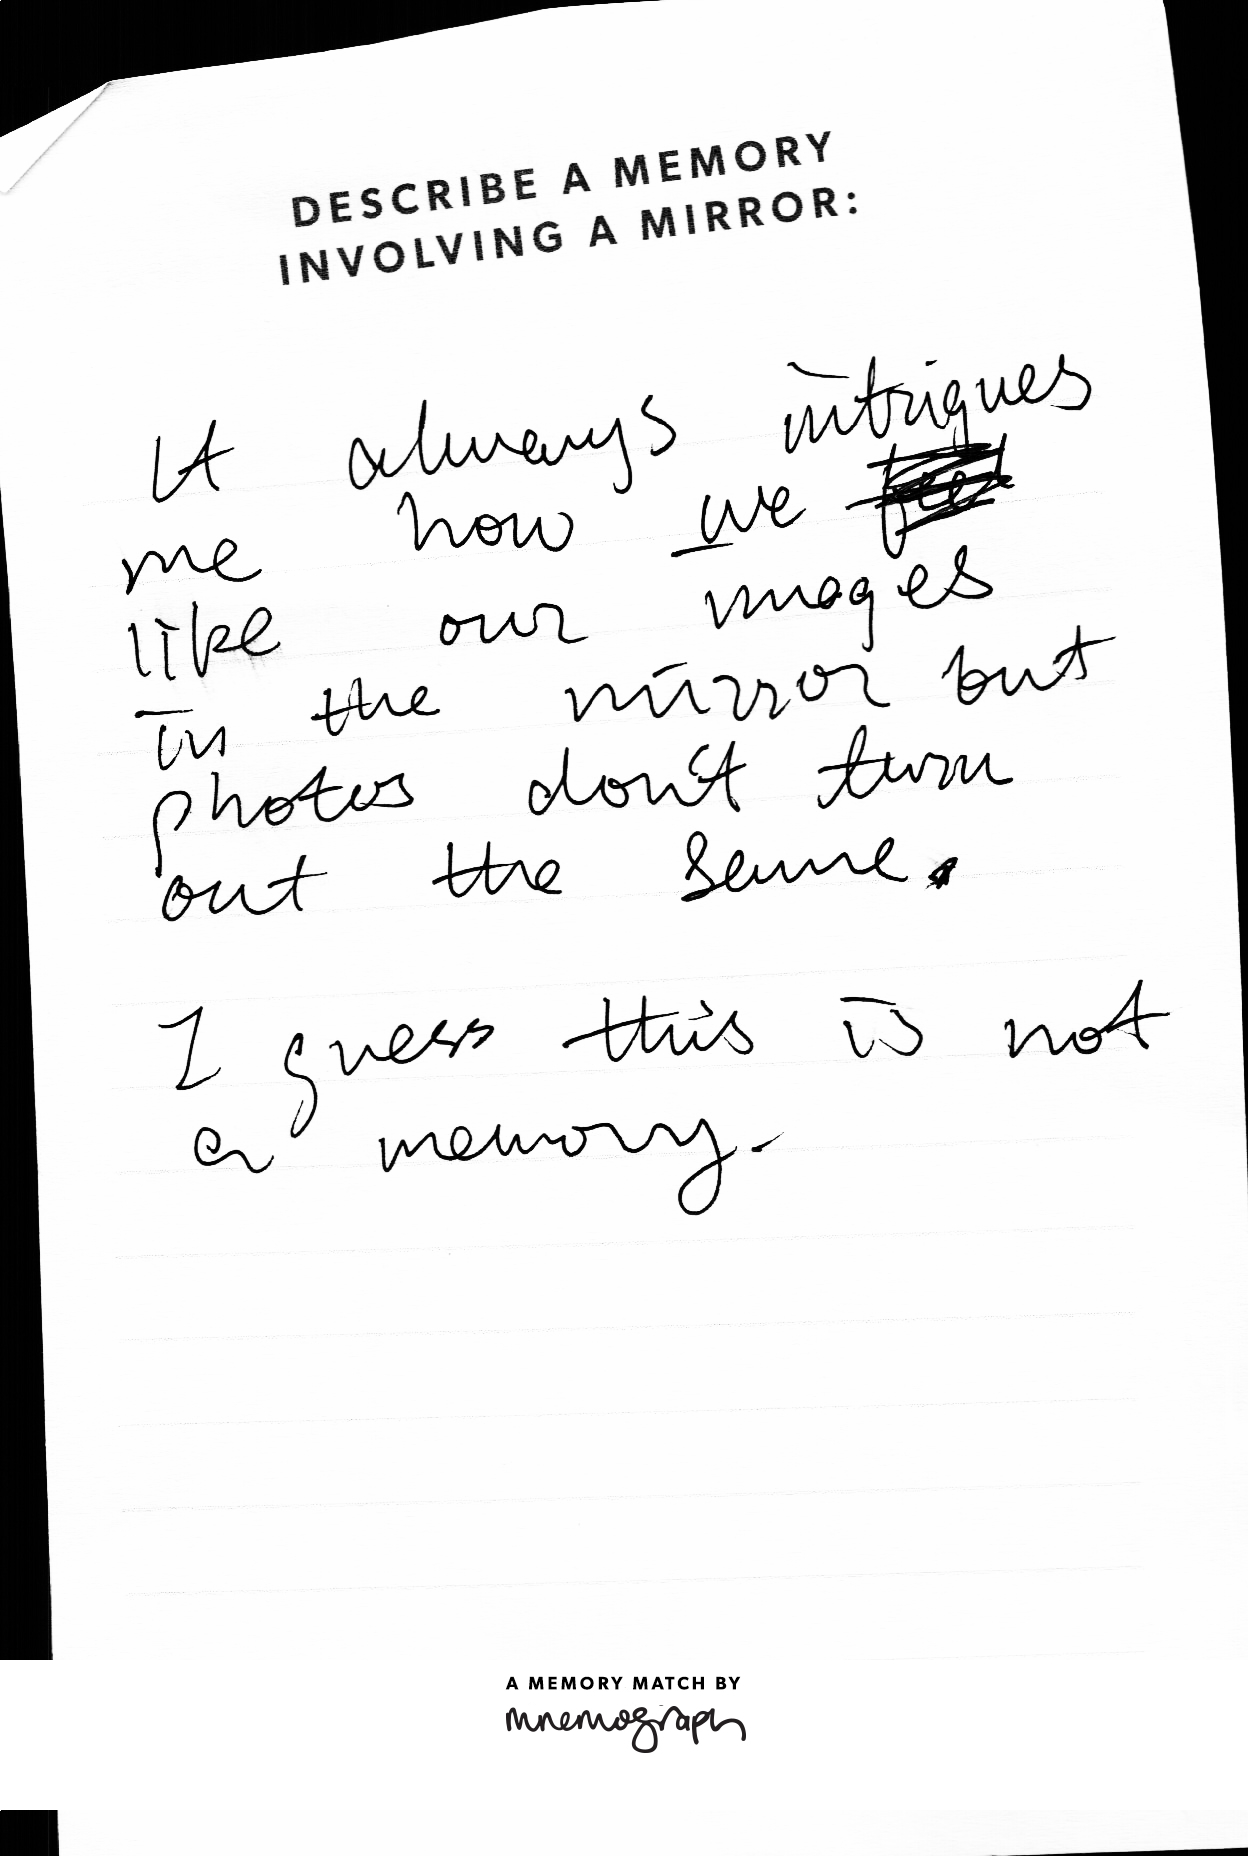 DESCRIBE A MEMORY
INVOLVING A MIRROR:
It always intrigues
me how we
like our images
in the mirror but
photos don't turn
out the same.
I guess this is not
a memory.
A MEMORY MATCH BY
mnemograph